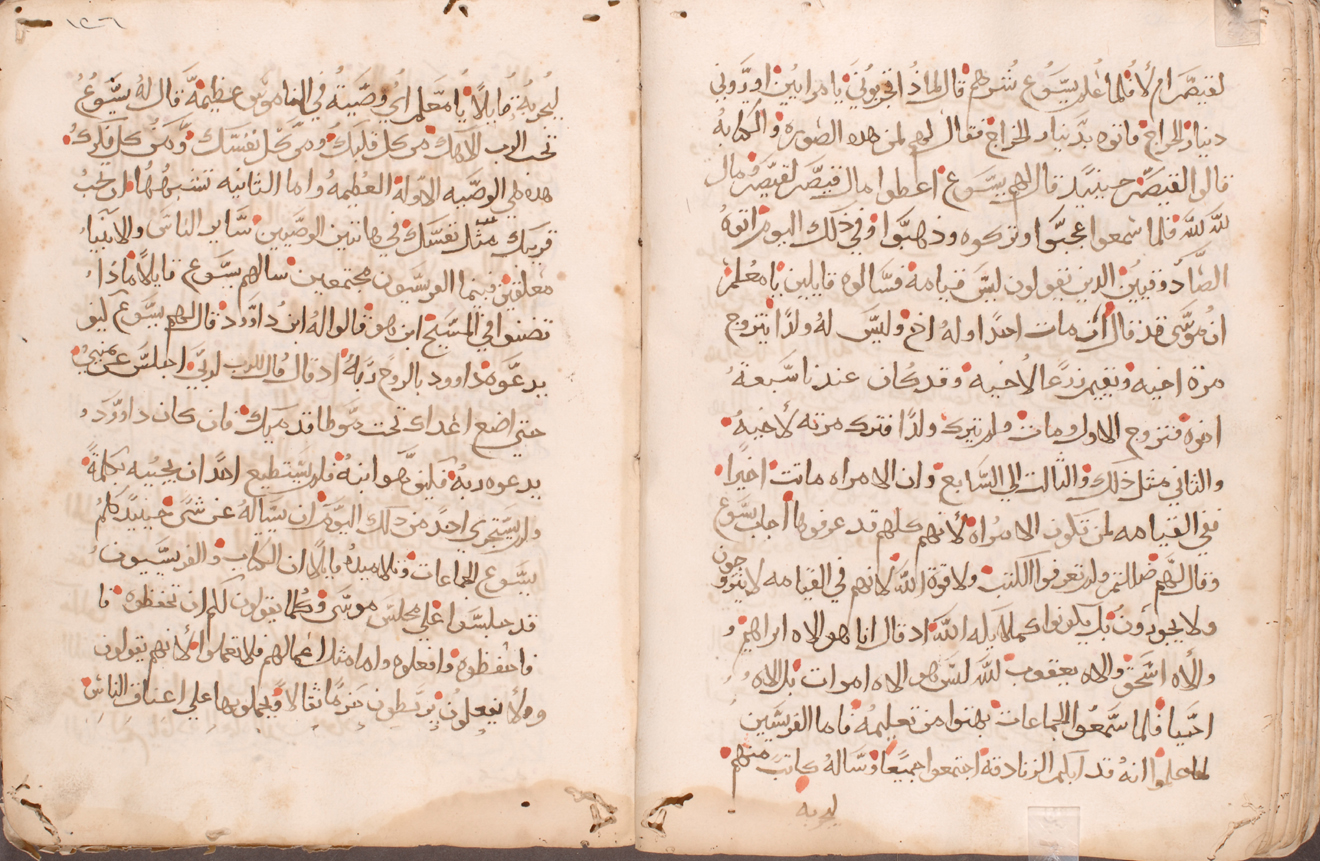 لقيصر ام لا فلما علم يسوع شرهم قال لماذا تجربوني يا مراييين اوروني
دينار الخراج فاتوه بدينار الخراج فقال لهم لمن هذه الصوره والكتابه
قالوا لقيصر حينيذ قال لهم يسوع اعطوا مال قيصر لقيصر ومال
لله لله فلما سمعوا عجبوا وتركوه وذهبوا وفي ذلك اليوم اتوه
الصادوقيين الذين يقولون ليس قيامه فسالوه قايلين يا معلم
ان موسى قد قال ان مات احدا وله اخ وليس له ولدا يتزوج
مرة اخيه ويقيم زرعا لاخيه وقد كان عندنا سبعة
اخوه فتزوج الاول ومات ولم يترك ولدا فترك مرته لاخيه
والثاني مثل ذلك والثالث الى السابع وان الامراه ماتت اخيرا
ففي القيامه لمن تكون الامراه لانهم كلهم قد عرفوها اجاب يسوع
وقال لهم ضللتم ولم تعرفوا الكتب ولا قوة الله لانهم في القيامه لا يتزوجون
ولا يكونوا كملايكه الله اذ قال انا هو الاه ابراهيم و
والاه اسحق والاه يعقوب لله ليس هو الاه اموات بل الاه
احيا فلما سمعوا الجماعات بهتوا من تعليمه فاما الفريسيين
لما علموا انه قد ابكم الزنادقة اجتمعوا جميعا وساله كاتب منهم
ليجربه
١٢٦
ليجربه قايلا يا معلم اي وصية في الناموس عظيمة قال له يسوع
تحب الرب الاهك من كل قلبك ومن كل نفسك ومن كل فكرك
هذه هي الوصيه الاولة العظيمه واما الثانيه تشبهها ان تحب
قريبك مثل نفسك في هاتين الوصيتين ساير الناس والانبياء
معلقين فبينما الفريسيون مجتمعين سالهم يسوع قايلا ماذا
تضنوا في المسيح ابن من هو قالوا له ابن داوود قال لهم يسوع كيف
يدعوه داوود بالروح ربه اذ قال قال الرب لربي اجلس عن يميني
حتى اضع اعداك تحت موطا قدميك فان كان داوود
يدعوه ربه فكيف هو ابنه فلم يستطيع احدا ان يجيبه بكلمة
ولم يستجري احد من ذلك اليوم ان يساله عن شي حينيذ كلم
يسوع الجماعات وتلاميذه قايلا ان الكتاب والفريسيون
قد جلسوا على مجلس موسى وكلما يقولون لكم ان تحفظوه فا
فاحفظوه وافعلوه واما مثل اعمالهم فلا تعملوا لانهم يقولون
ولا يفعلون يربطون حزما ثقالا ويحملونها علي اعناق الناس